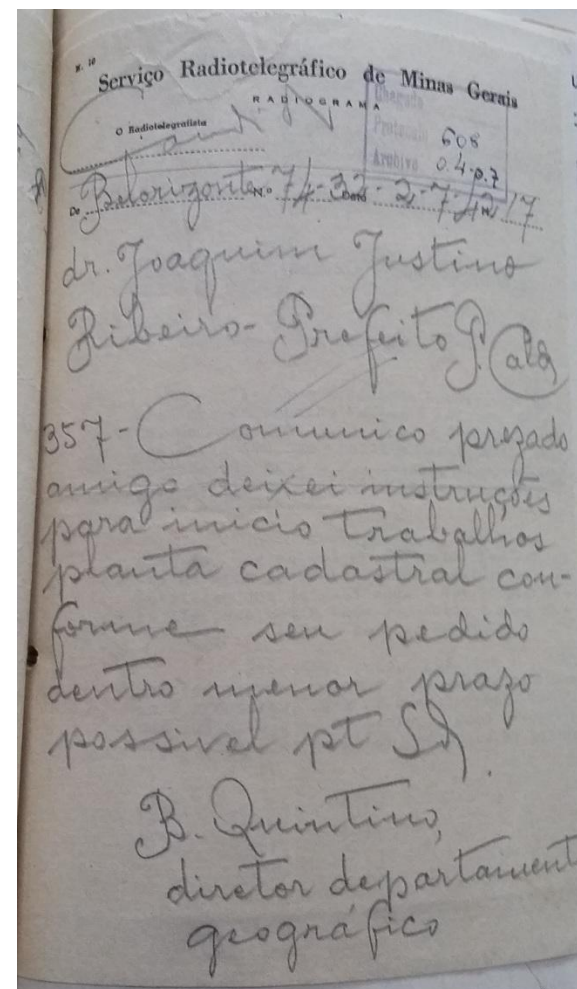 N. 10
Serviço Radiotelegráfico de Minas Gerais
RADIOGRAMA
O Radiotelegrafista
Chegada
Protocolo 608
Archivo 04-p.7
De Belorizonte N.o 74-32 Data 2-7-42 17
dr. Joaquim Justino
Ribeiro - Prefeito P. Calds
357 - Comunico prezado
amigo deixei instruções
para inicio trabalhos
planta cadastral con-
forme seu pedido
dentro menor prazo
possivel pt Sds.
B. Quintino,
diretor departament
geográfico